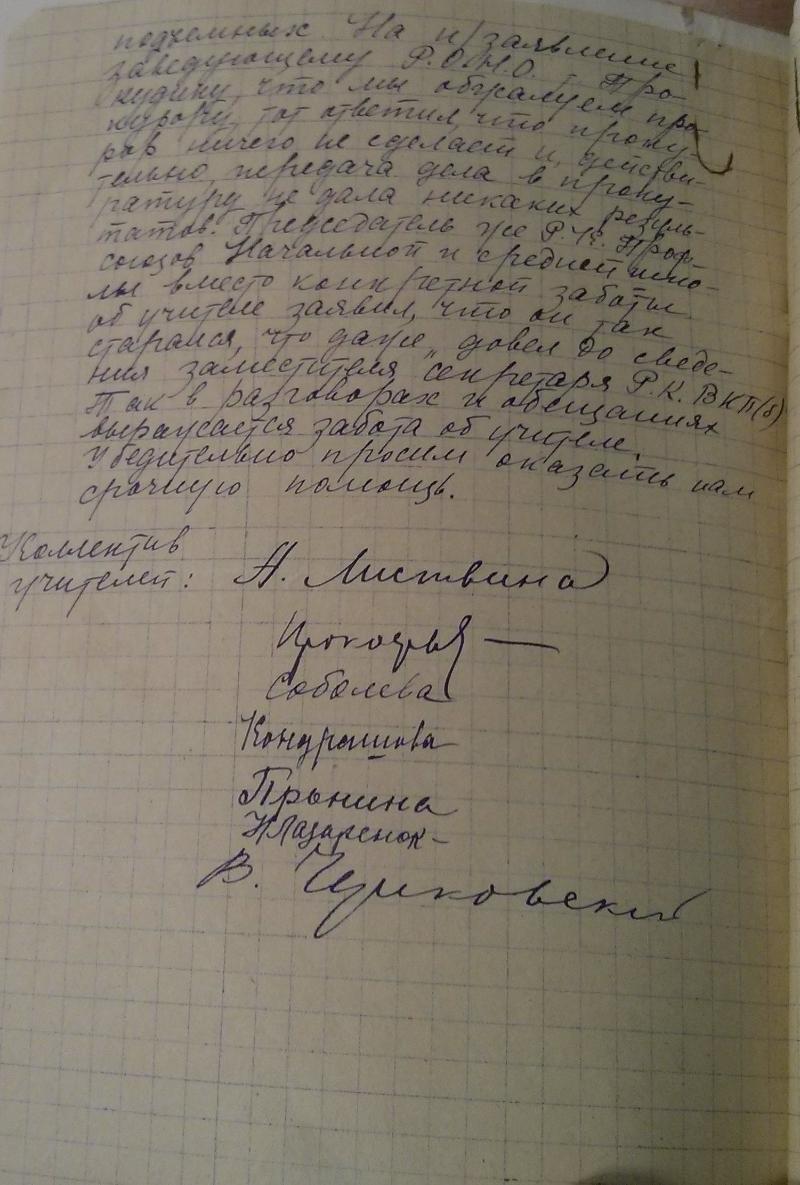 подъемных. На н/заявление
заведующему Р.О.Н.О. Про-
кудину, что мы обжалуем про-
курору, тот ответил, что проку-
рор ничего не сделает и, действи-
тельно, передача дела в проку-
ратуру не дала никаких резуль-
татов. Председатель же Р.К. Проф-
союзов Начальной и средней шко-
лы вместо конкретной заботы
об учителе заявил, что он так
старался, что даже „довел до сведе-
ния заместителя секретаря Р.К. ВКП(б)
Так в разговорах и обещаниях
выражается забота об учителе.
Убедительно просим оказать нам
срочную помощь.
Коллектив
учителей: А. Листвина
Прокофья
Соболева
Кондрашова
Прынина
Н Лазаренок
В.